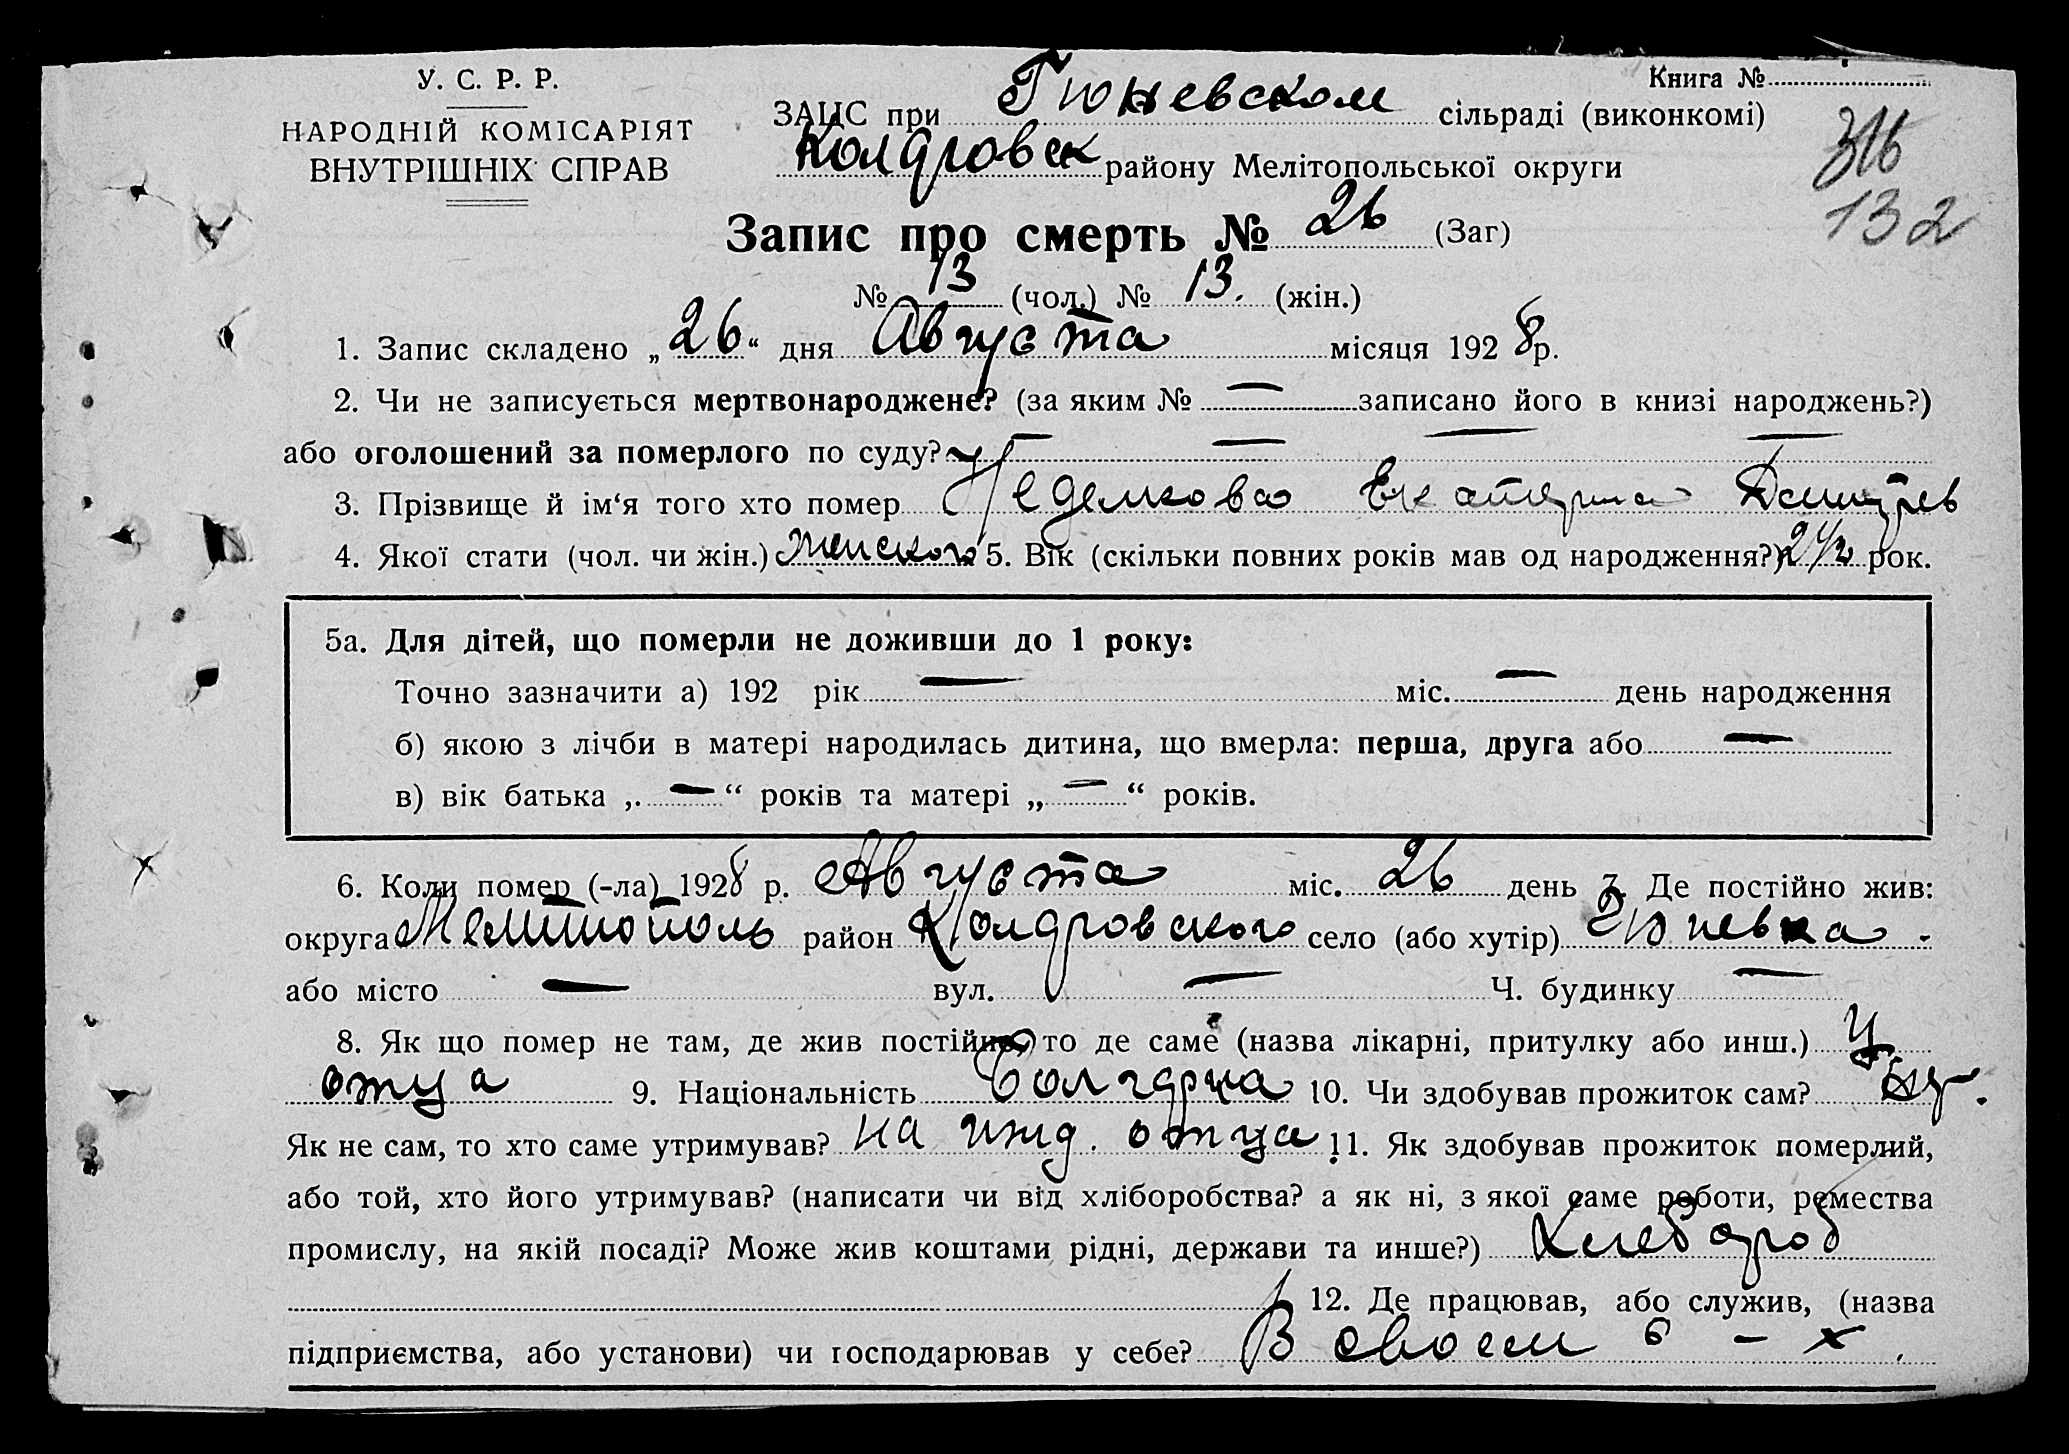 У. С. Р. Р.
НАРОДНІЙ КОМІСАРІЯТ
ВНУТРІШНІХ СПРАВ
Книга №
ЗАЦС при Гюневском сільраді (виконкомі)
Колдровск району Мелітопольської округи
316
132
Запис про смерть № 26 (Заг)
№ 13 (чол.) № 13. (жін.)
1. Запис складено „26“ дня Августа місяця 1928 р.
2. Чи не записується мертвонароджене? (за яким № — записано його в книзі народжень?)
або оголошений за померлого по суду? — — — —
3. Прізвище й ім‘я того хто помер Неделкова Екатерина Дмитрев
4. Якої стати (чол. чи жін.) Женского 5. Вік (скільки повних років мав од народження?) 2 1/2 рок.
5а. Для дітей, що померли не доживши до 1 року:
Точно зазначити а) 192 рік — міс. — день народження
б) якою з лічби в матері народилась дитина, що вмерла: перша, друга або —
в) вік батька „ — “ років та матері „ — “ років.
6. Коли помер (-ла) 1928 р. Августа міс. 26 день 7. Де постійно жив:
округа Мелитополь район Колдровского село (або хутір) Гюневка
або місто — вул. — Ч. будинку —
8. Як що помер не там, де жив постійно, то де саме (назва лікарні, притулку або инш.) У
отца 9. Національність болгарка 10. Чи здобував прожиток сам?
Як не сам, то хто саме утримував? на ижд. отца 11. Як здобував прожиток померлий,
або той, хто його утримував? (написати чи від хліборобства? а як ні, з якої саме роботи, ремества
промислу, на якій посаді? Може жив коштами рідні, держави та инше?) Хлебороб
12. Де працював, або служив, (назва
підприємства, або установи) чи господарював у себе? В своем с - х